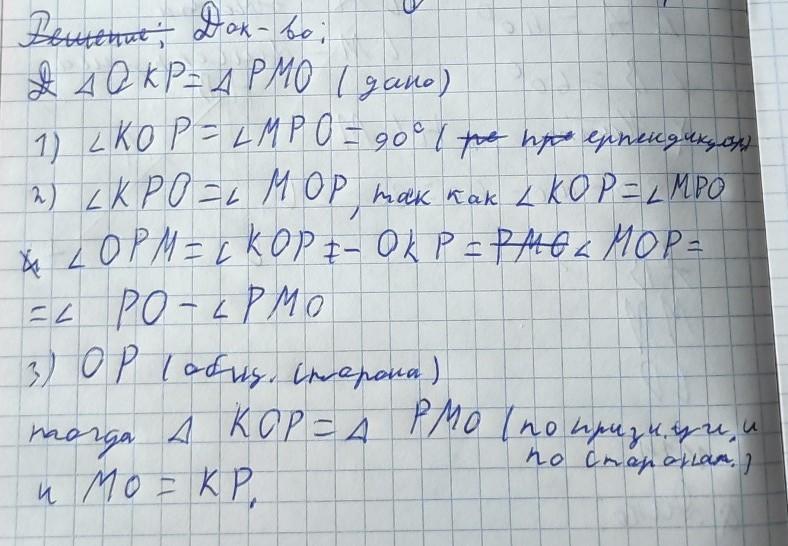 ~~Решение;~~ Док-во:
Δ OKP = Δ PMO (дано)
1) ∠KOP = ∠MPO = 90° ( ~~пе~~ ~~пр~~ ерпендикуляр)
2) ∠KPO = ∠ MOP, так как ∠KOP = ∠MPO
и ∠OPM = ∠KOP - OKP = ~~PMO~~ ∠ MOP =
= ∠ PO - ∠ PMO
3) OP (общ. сторона)
тогда Δ KOP = Δ PMO (по
и MO = KP. по сторонам.)